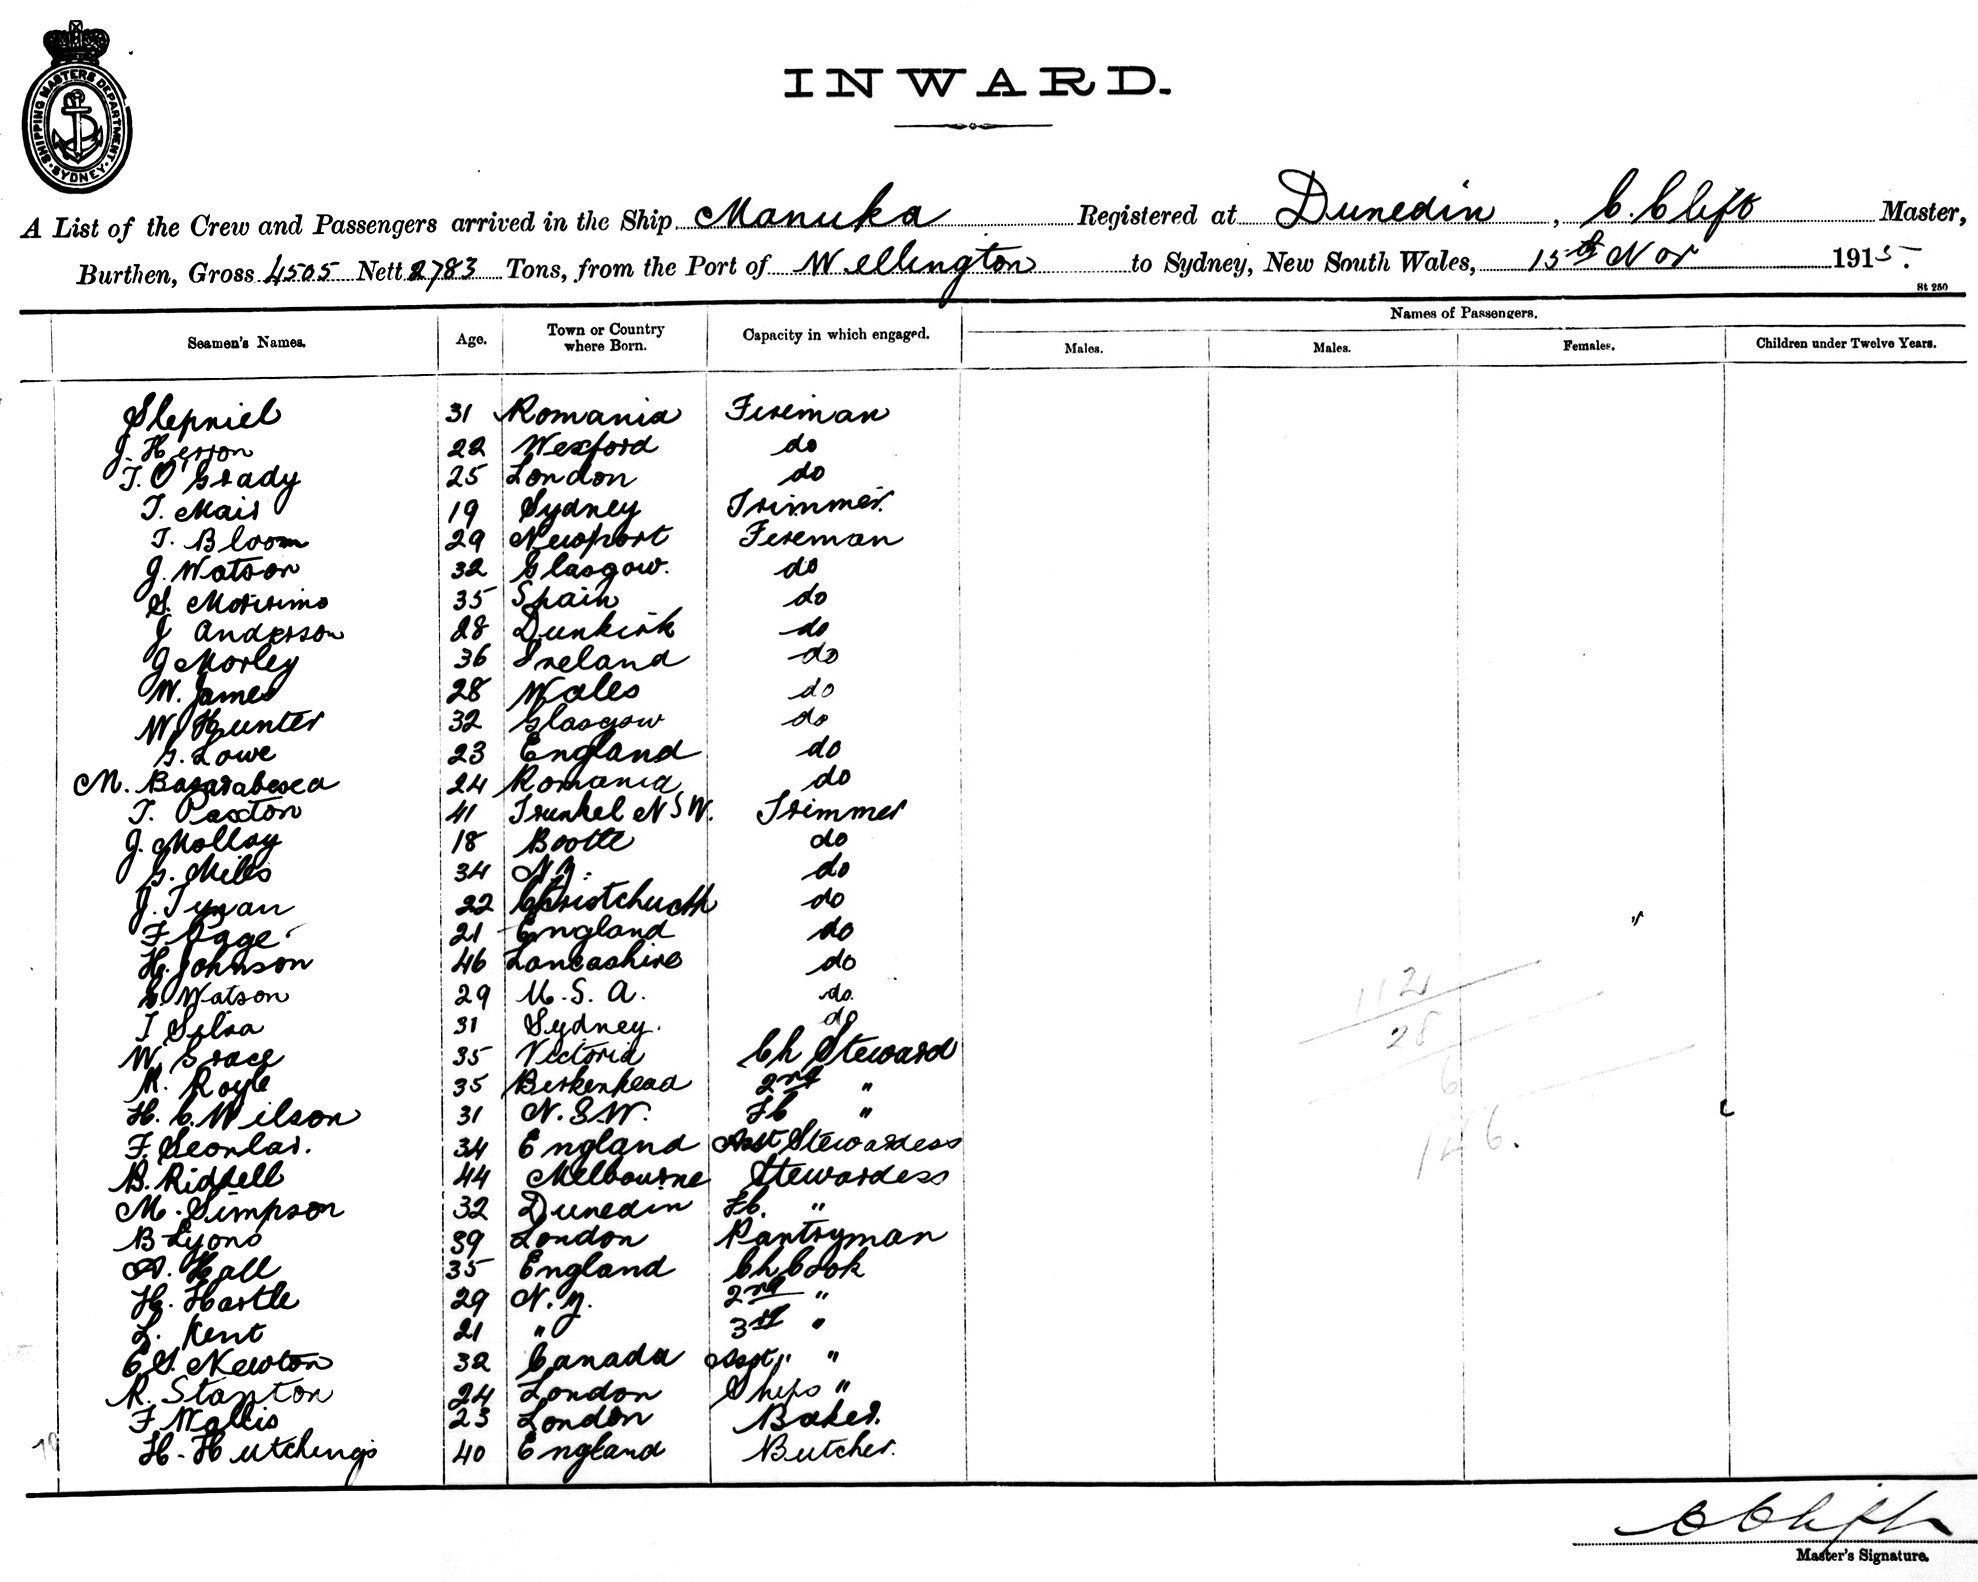 SHIPPING MASTERS DEPARTMENT
SYDNEY
INWARD.
A List of the Crew and Passengers arrived in the Ship Manuka Registered at Dunedin, C. Clift Master,
Burthen, Gross 4505 Nett 2783 Tons, from the Port of Wellington to Sydney, New South Wales, 15th Nov 1915.
St 250
Seamen's Names. Age. Town or Country where Born. Capacity in which engaged. Names of Passengers.
Males. Males. Females. Children under Twelve Years.
31 Romania Fireman
J. Herron 22 Wexford do
T. O'Grady 25 London do
T. Mair 19 Sydney Trimmer
T. Bloom 29 Newport Fireman
J. Watson 32 Glasgow. do
S. 35 Spain do
J Anderson 28 Dunkirk do
J Morley 36 Ireland do
W. James 28 Wales do
W. Hunter 32 Glasgow do
G. Lowe 23 England do
M. Basarabesca 24 Romania do
T. Paxton 41 Trunkel N S W. Trimmer
J. Molloy 18 Bootle do
G. Mills 34 N.Z. do
J. Tynan 22 Christchurch do
F. Page 21 England do
H. Johnson 46 Lancashire do
Watson 29 U.S.A. do
Silva 31 Sydney. do
W. Grace 35 Victoria Ch Steward
R. Royle 35 Birkenhead 2nd "
H. C. Wilson 31 N.S.W. F.C "
F. 34 England Asst Stewardess
B. Riddell 44 Melbourne Stewardess
M. Simpson 32 Dunedin F.C. "
B Lyons 39 London Pantryman
A. Hall 35 England Ch Cook
H. Hartle 29 N.Z. 2nd "
L. Kent 21 " 3rd "
C G. Newton 32 Canada Asst " "
R. Stanton 24 London Ships "
F Wallis 23 London Baker.
H. Hutchings 40 England Butcher.
79
112
28
6
146.
C Clift
Master's Signature.